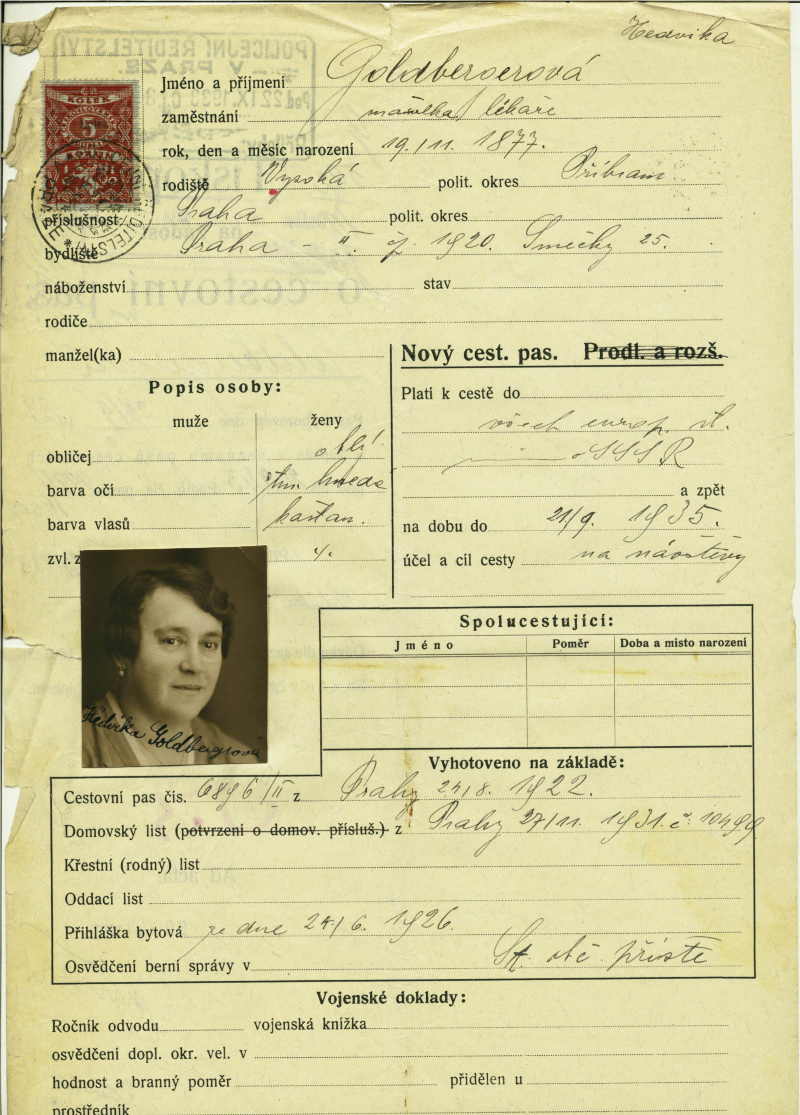 Hedvika
Jméno a příjmení Goldbergerová
zaměstnání lékaře
rok, den a měsíc narození 19./11. 1877.
rodiště Vysoká polit. okres Příbram
příslušnost Praha polit. okres
bydliště Praha – II. čp. 1920. Smečky 25.
náboženství stav
rodiče
manžel(ka)
Nový cest. pas. Prodl. a rozš.
Popis osoby:
muže ženy
obličej oblý
barva očí tm. hnědé
barva vlasů kaštan.
zvl. z
Platí k cestě do
všech evrop. st.
SSSR
a zpět
na dobu do 21/9. 1935.
účel a cíl cesty na návštěvy
Hedvika Goldbergrová
Spolucestující:
Jméno Poměr Doba a místo narození
Vyhotoveno na základě:
Cestovní pas čís. 6896/II z Prahy 24/8. 1922.
Domovský list (potvrzení o domov. přísluš.) z Prahy 27/11. 1931. č. 10499
Křestní (rodný) list
Oddací list
Přihláška bytová ze dne 24/6. 1926.
Osvědčení berní správy v St. obč. příště
Vojenské doklady:
Ročník odvodu vojenská knížka
osvědčení dopl. okr. vel. v
hodnost a branný poměr přidělen u
prostředník
KOLEK
5